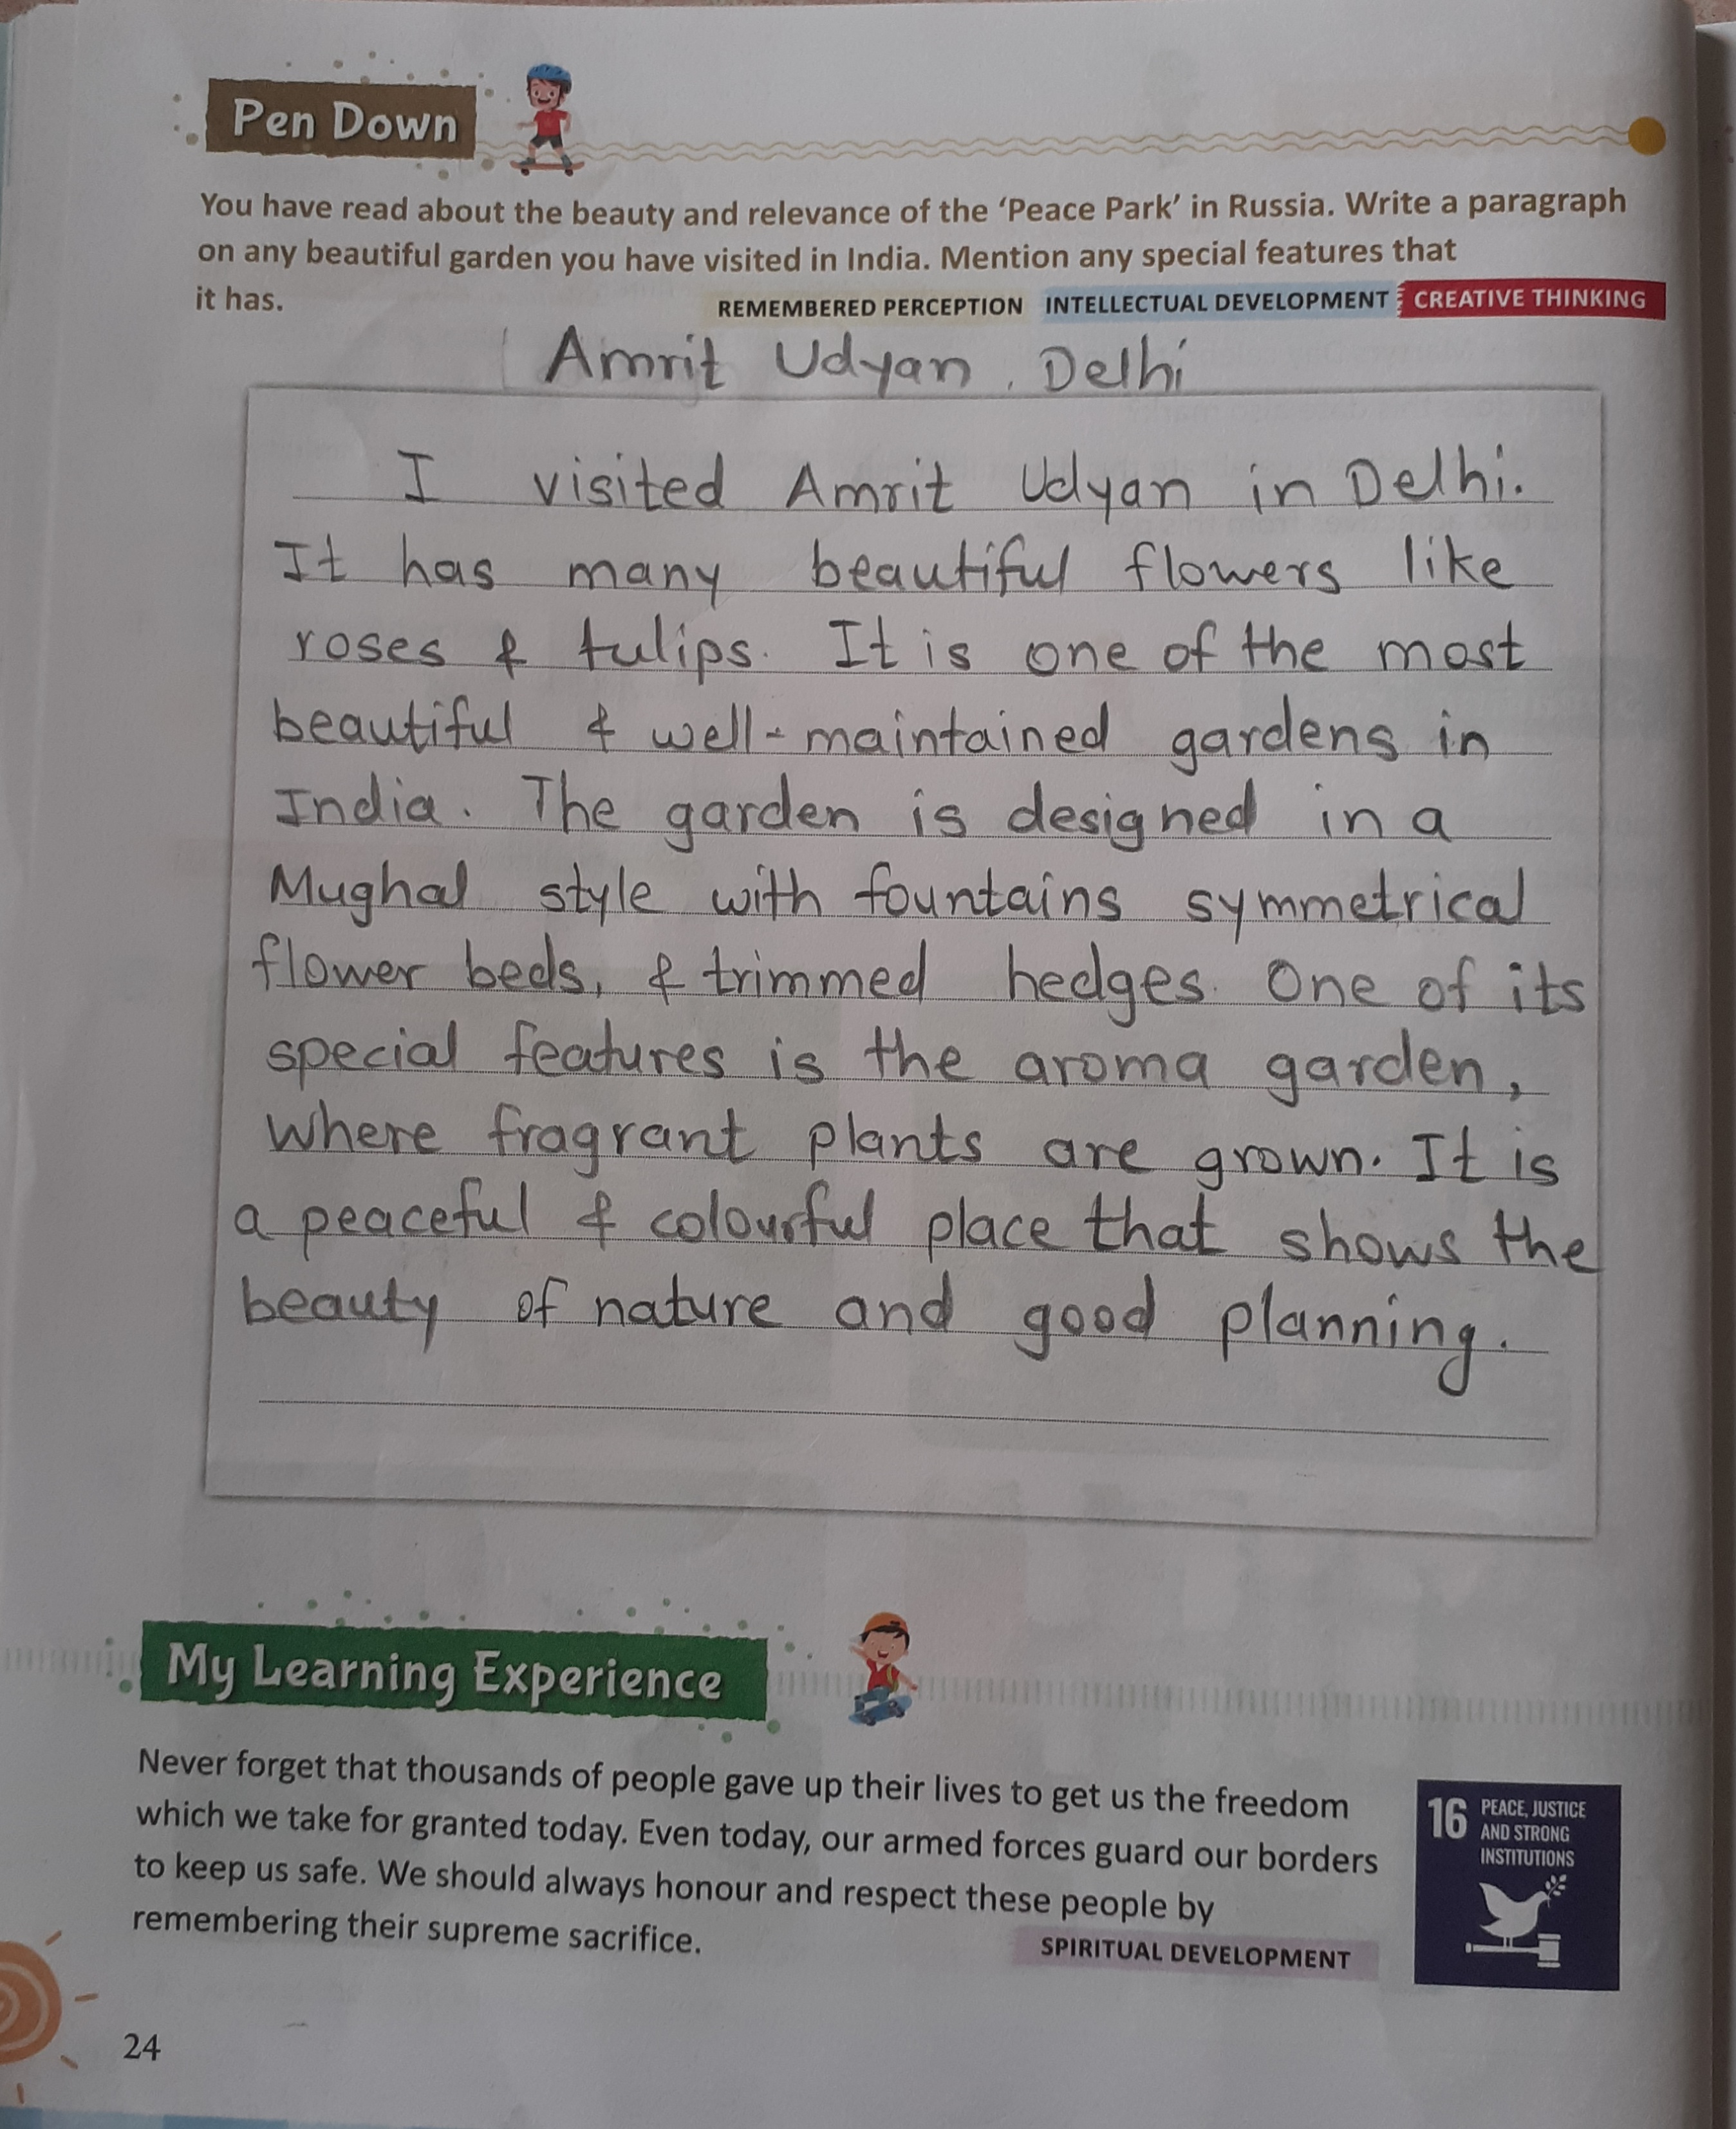 Pen Down
You have read about the beauty and relevance of the ‘Peace Park’ in Russia. Write a paragraph
on any beautiful garden you have visited in India. Mention any special features that
it has.
REMEMBERED PERCEPTION INTELLECTUAL DEVELOPMENT CREATIVE THINKING
Amrit Udyan, Delhi
I visited Amrit Udyan in Delhi.
It has many beautiful flowers like
roses & tulips. It is one of the most
beautiful & well-maintained gardens in
India. The garden is designed in a
Mughal style with fountains symmetrical
flower beds, & trimmed hedges. One of its
special features is the aroma garden,
where fragrant plants are grown. It is
a peaceful & colourful place that shows the
beauty of nature and good planning.
My Learning Experience
Never forget that thousands of people gave up their lives to get us the freedom
which we take for granted today. Even today, our armed forces guard our borders
to keep us safe. We should always honour and respect these people by
remembering their supreme sacrifice.
SPIRITUAL DEVELOPMENT
16 PEACE, JUSTICE
AND STRONG
INSTITUTIONS
24